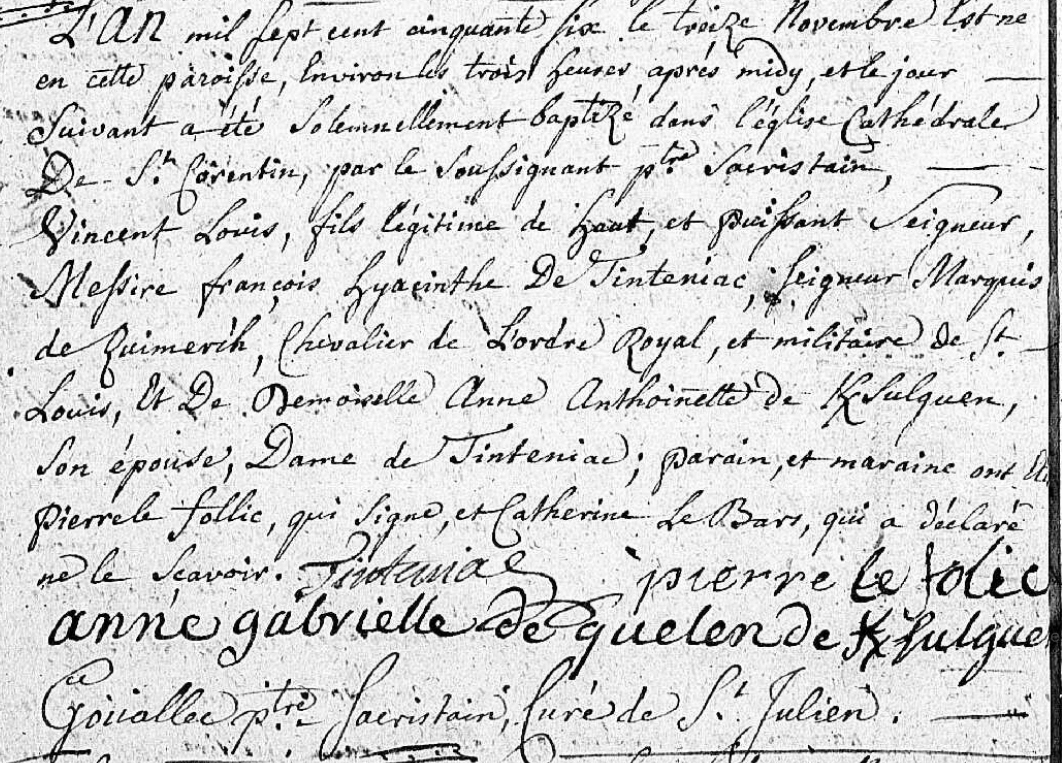 L'AN mil sept cent cinquante six le treize Novembre Est né
en cette paroisse, Environ les trois heures aprés midy, et le jour
Suivant a été Solemnellement baptizé dans l'église Cathédrale
De St. Corentin, par le Soussignant ptre Sacristain,
Vincent Louis, fils légitime de haut, et puissant Seigneur,
Messire françois hyacinthe De Tinteniac, Seigneur Marquis
de Quimerch, Chevalier de L'ordre Royal, et militaire de St.
Louis, Et De Demoiselle Anne Anthoinette de Ksulguen,
Son épouse, Dame de Tinteniac; parain, et maraine ont
pierre le follic, qui Signe, et Catherine Le Bars, qui a déclaré
ne le Scavoir. Tinteniac pierre le folic
anne gabrielle de quelen de Ksulgue
Goüallec ptre Sacristain, Curé de St Julien.